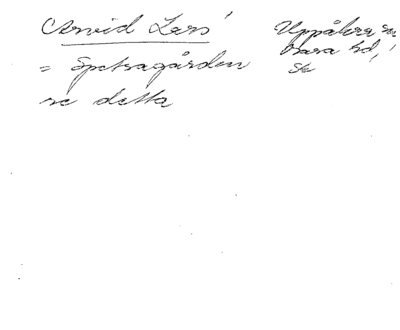 Arvid Lars'
= Spetsagården
se detta
Uppåkra sn
Bara hd,
Sk